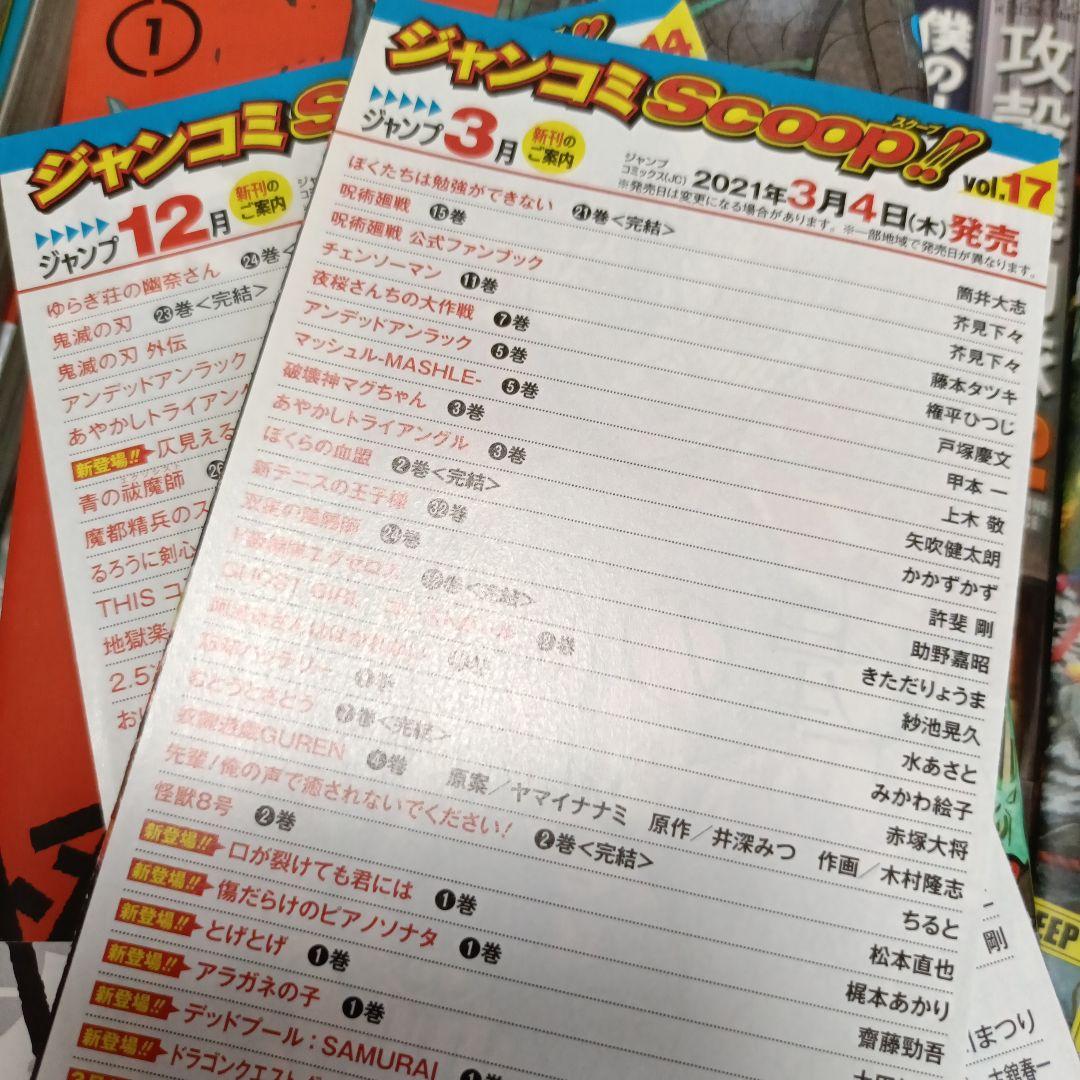 ジャンコミScoop!!
スクープ
vol.17
ジャンプ3月
新刊の
ご案内
ジャンプ
コミックス(JC)
2021年3月4日(木)発売
※発売日は変更になる場合があります。※一部地域で発売日が異なります。
ぼくたちは勉強ができない 21巻<完結> 筒井大志
呪術廻戦 15巻 芥見下々
呪術廻戦 公式ファンブック 芥見下々
チェンソーマン 11巻 藤本タツキ
夜桜さんちの大作戦 7巻 権平ひつじ
アンデッドアンラック 5巻 戸塚慶文
マッシュル-MASHLE- 5巻 甲本 一
破壊神マグちゃん 3巻 上木 敬
あやかしトライアングル 3巻 矢吹健太朗
ぼくらの血盟 2巻<完結> かかずかず
新テニスの王子様 32巻 許斐 剛
双星の陰陽師 24巻 助野嘉昭
巻<完結> きただりょうま
GHOST GIRL 2巻 紗池晃久
水あさと
1巻 みかわ絵子
むとうとさとう 2巻<完結> 赤塚大将
放課後遊廓GUREN 4巻 原案/ヤマイナナミ 原作/井深みつ 作画/木村隆志
先輩!俺の声で癒されないでください! 2巻<完結> ちると
怪獣8号 2巻 松本直也
新登場!! 口が裂けても君には 1巻 梶本あかり
新登場!! 傷だらけのピアノソナタ 1巻 齋藤勁吾
新登場!! とげとげ 1巻
新登場!! アラガネの子 1巻
新登場!! デッドプール:SAMURAI 1
新登場!! ドラゴンクエスト
ジャンコミS
ジャンプ12月
新刊の
ご案内
ゆらぎ荘の幽奈さん 24巻<
鬼滅の刃 23巻<完結>
鬼滅の刃 外伝
アンデッドアンラック
あやかしトライアン
新登場!! 仄見える
青の祓魔師 26
魔都精兵のス
るろうに剣心
THIS コ
地獄楽
2.5
お
1
攻殻
僕の
剛
まつり
古舘春一
EEP